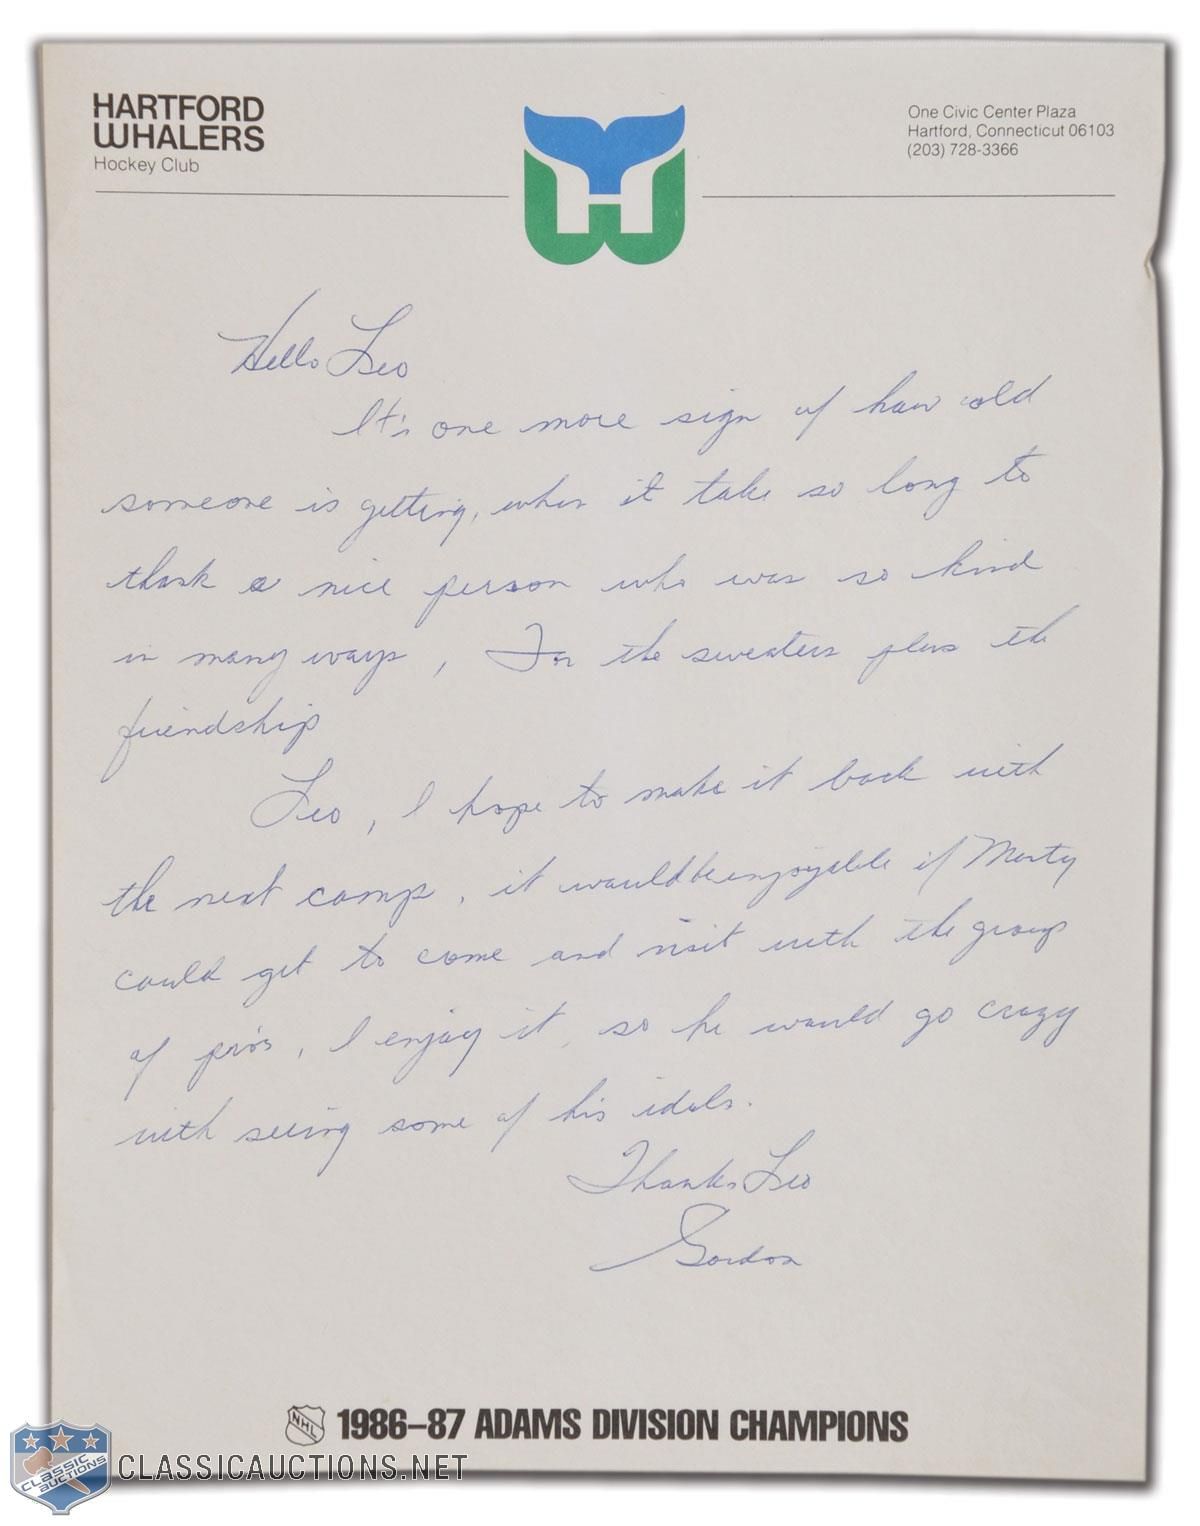 HARTFORD
WHALERS
Hockey Club
One Civic Center Plaza
Hartford, Connecticut 06103
(203) 728-3366
Hello Leo
It's one more sign of how old
someone is getting, when it take so long to
thank a nice person who was so kind
in many ways, For the sweaters plus the
friendship
Leo, I hope to make it back with
the next camp, it would be enjoyable if Marty
could get to come and visit with the group
of pro's, I enjoy it, so he would go crazy
with seeing some of his idols.
Thanks Leo
Gordon
NHL 1986–87 ADAMS DIVISION CHAMPIONS
CLASSIC AUCTIONS
CLASSICAUCTIONS.NET